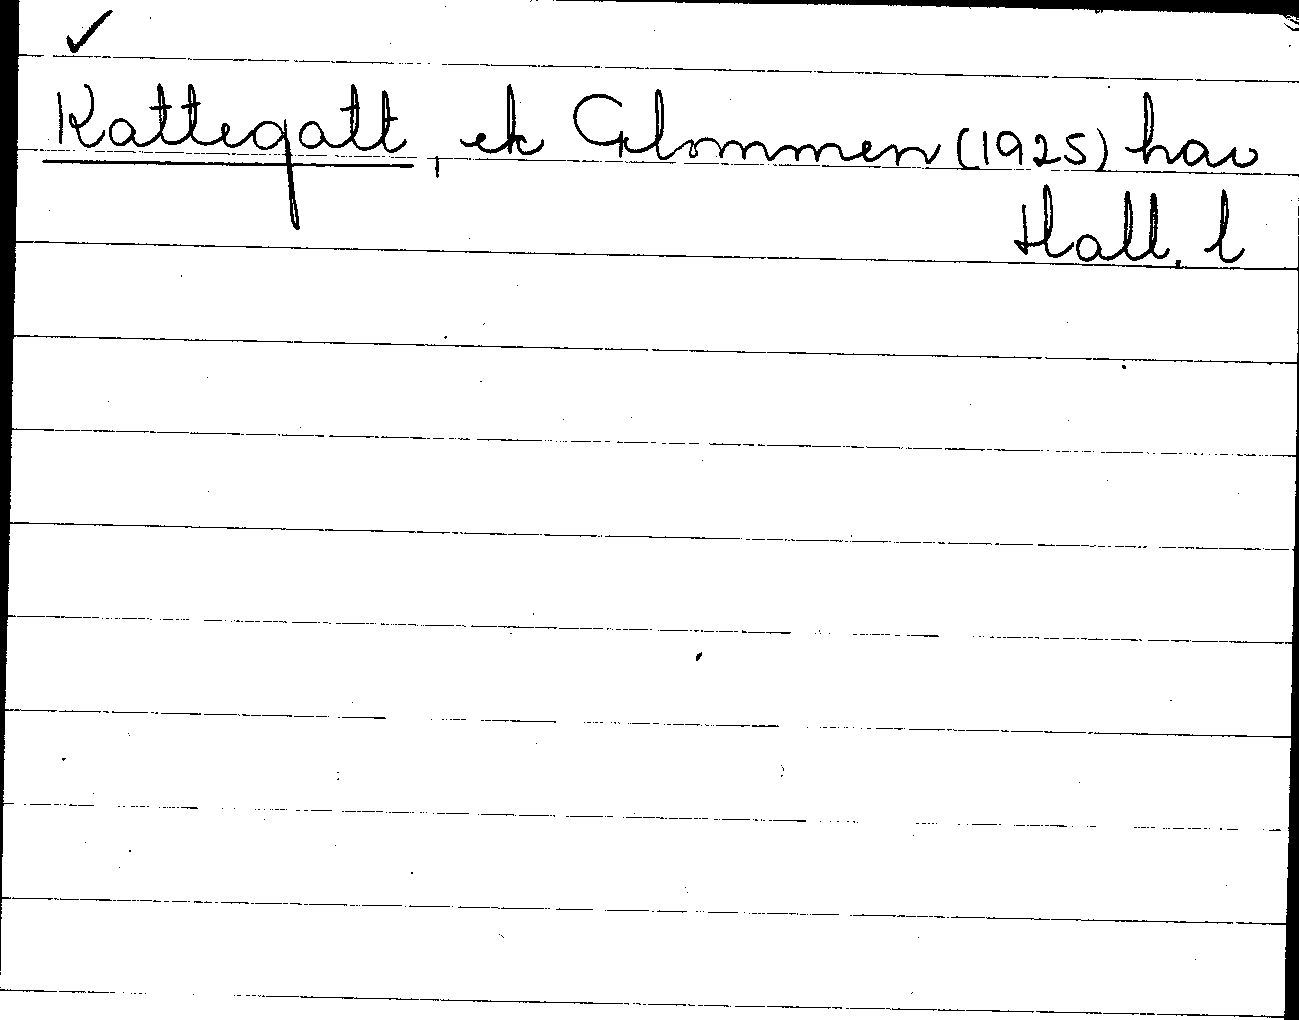 ✓
Kattegatt, ek Glommen (1925) hav
Hall. l